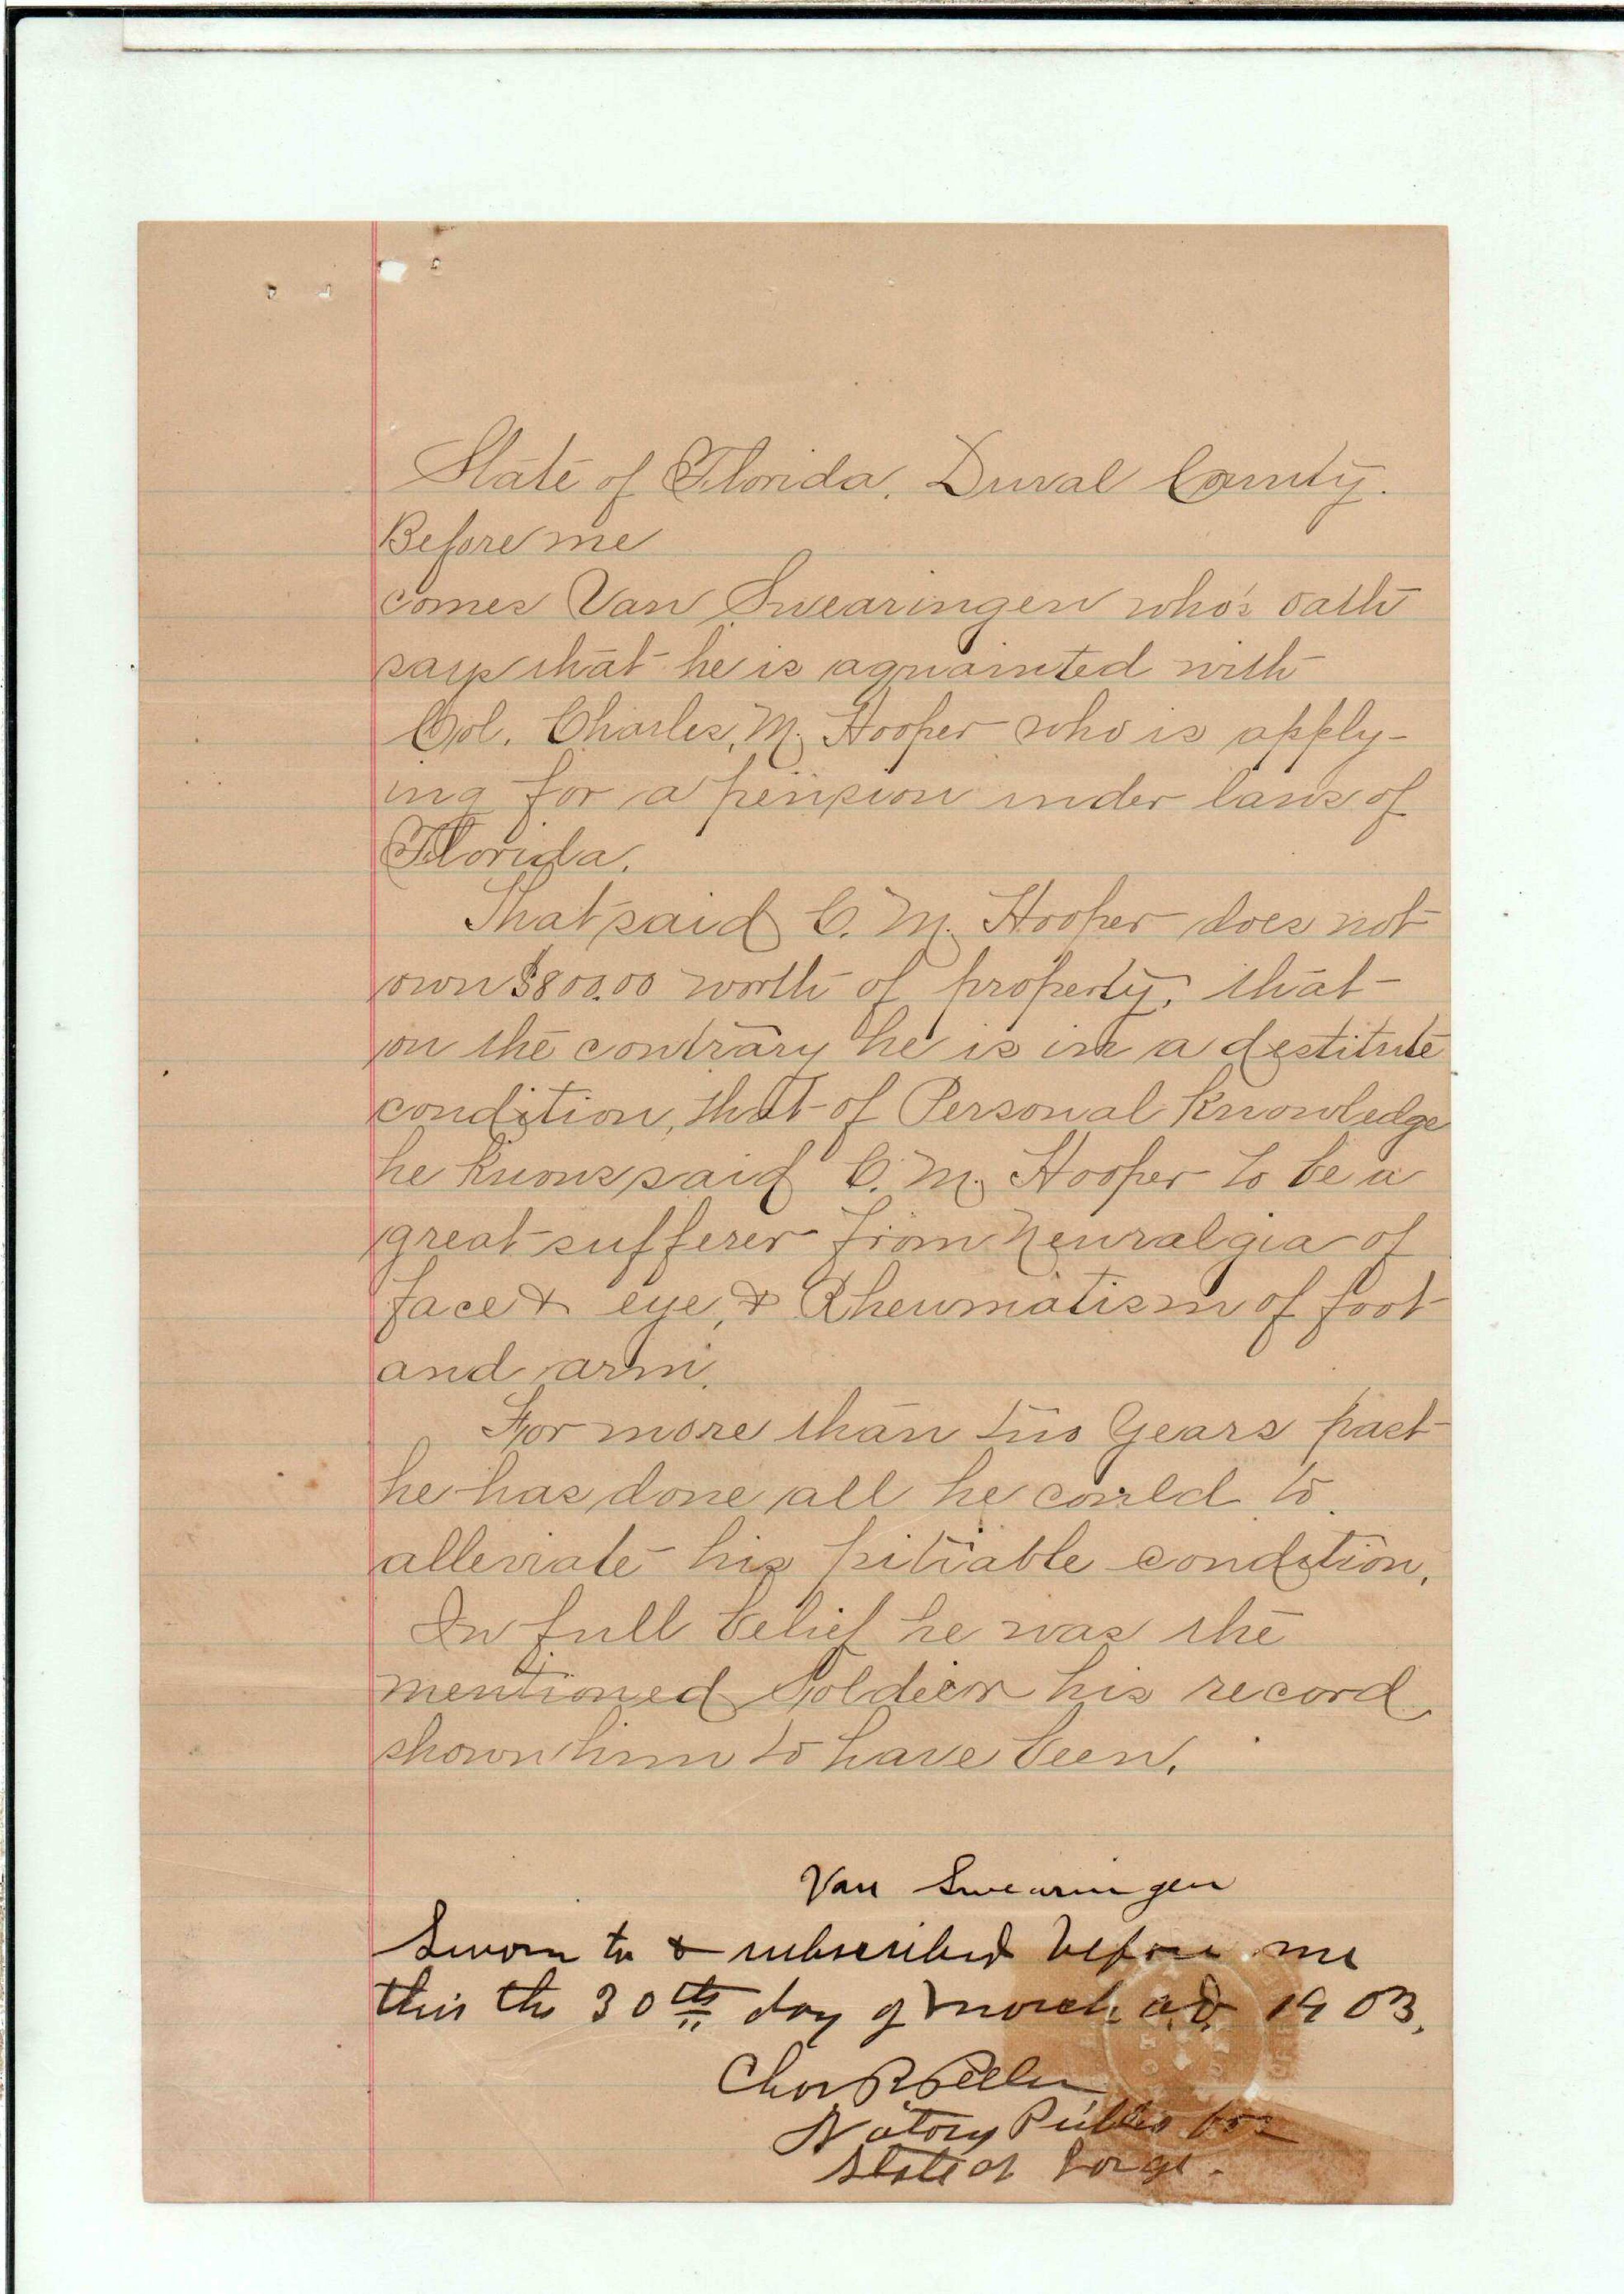 State of Florida. Duval County.
Before me
comes Van Swearingen who's oath
says that he is aquainted with
Col. Charles. M. Hooper who is apply-
ing for a pension under laws of
Florida.
That said C. M. Hooper does not
own $800.00 worth of property, that
on the contrary he is in a destitute
condition, that of Personal Knowledge
he knows said C. M. Hooper to be a
great sufferer from Neuralgia of
face & eye, & Rheumatism of foot
and arm.
For more than two years past
he has done all he could to
alleviate his pitiable condition.
In full belief he was the
mentioned Soldier his record
shown him to have been.
Van Swearingen
Sworn to & subscribed before me
this the 30th day of March A.D. 1903.
Notary Public for
State at Large.